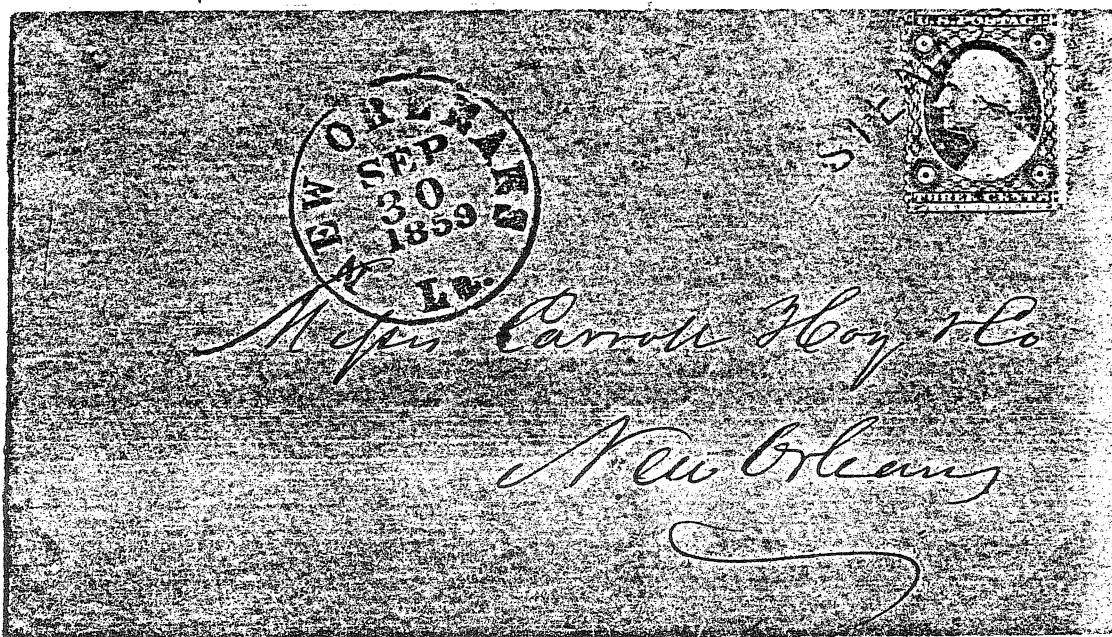 U.S. POSTAGE
THREE CENTS
STEAM
NEW ORLEANS
SEP
30
1859
La.
Messrs Carroll Hoy & Co
New Orleans